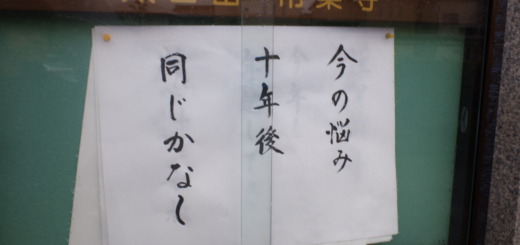 今の悩み
十年後
同じかなし